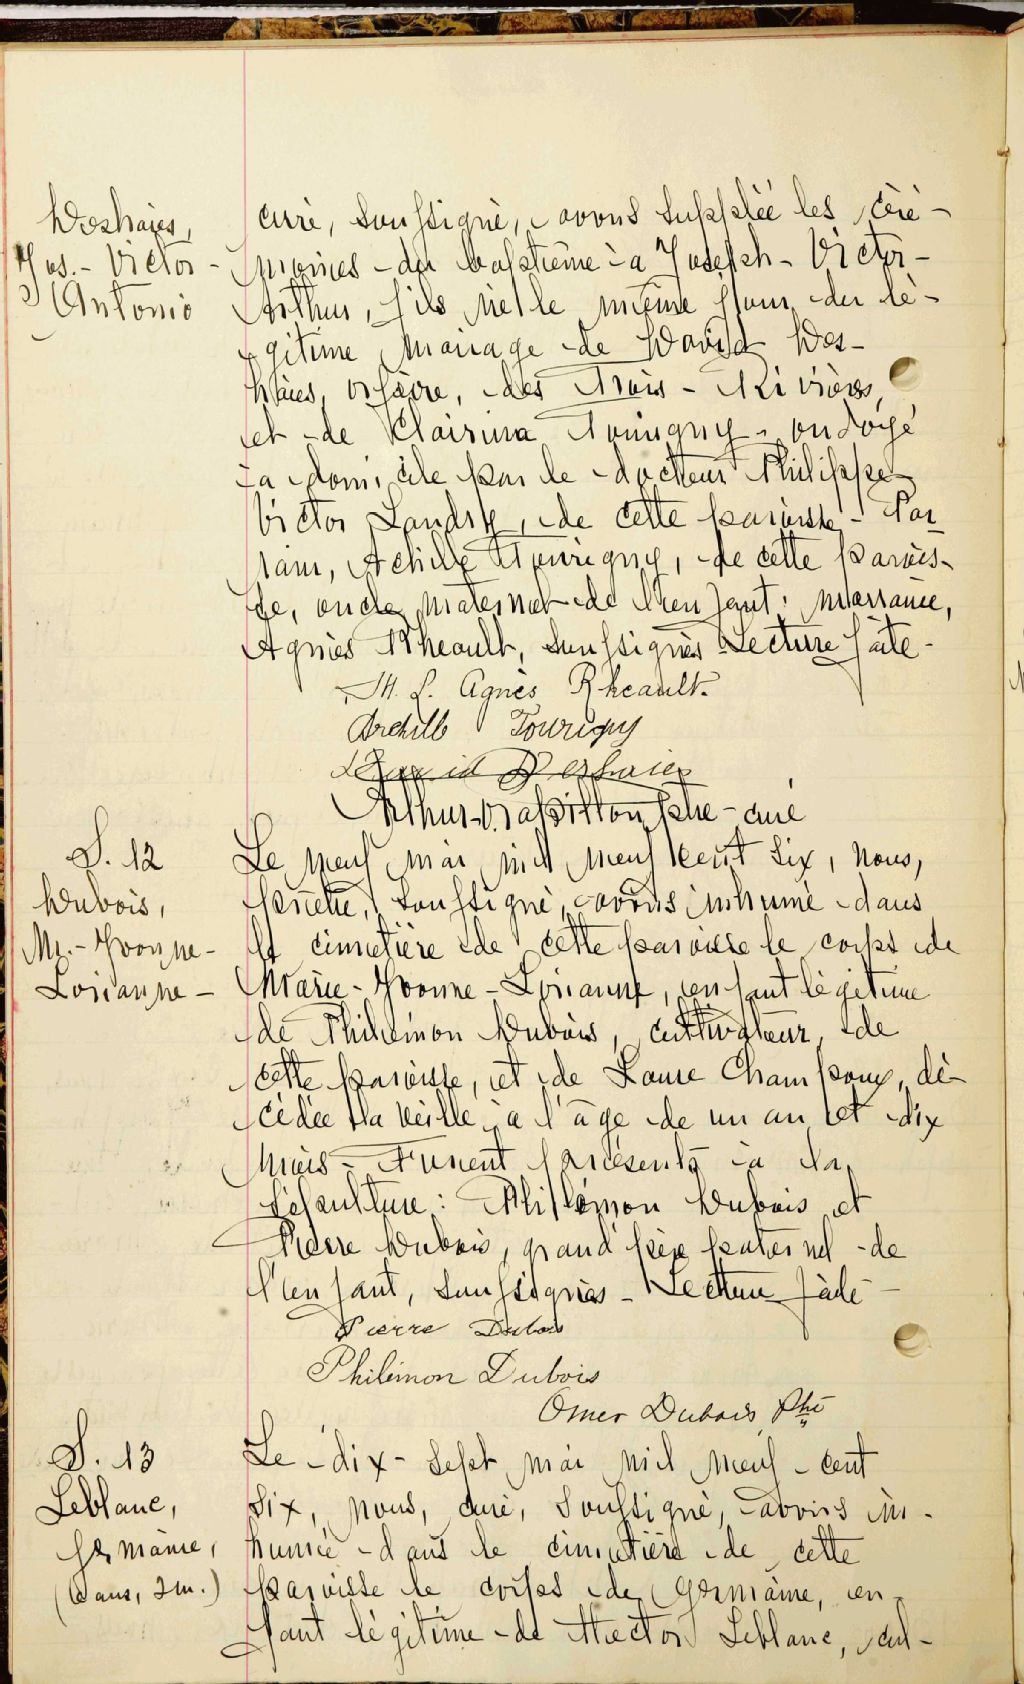 Deshaies,
Jos.- Victor -
Antonio
curé, soussigné, avons suppléé les céré-
monies du baptême à Joseph - Victor -
Arthur, fils né le même jour du lé-
gitime mariage de David Des-
haies, orfèvre, des Trois - Rivières,
et de Clairina Tourigny, ondoyé
à domicile par le docteur Philippe
Victor Landry, de cette paroisse - Par
rain, Achille Tourigny, de cette parois-
se, oncle maternel de l'enfant; marraine,
Agnès Rheault, soussignés - Lecture faite -
M. L. Agnès Rheault.
Archille Tourigny
David Deshaies
Arthur ptre - curé
S. 12
Dubois,
Me. - Yvonne -
Lorianne -
Le neuf mai mil neuf cent six, nous,
prêtre, soussigné, avons inhumé dans
le cimetière de cette paroisse le corps de
Marie - Yvonne - Lorianne, enfant légitime
de Philémon Dubois, cultivateur, de
cette paroisse, et de Laura Champoux, dé-
cédée la veille à l'âge de un an et dix
mois - Furent présents à la
sépulture: Philémon Dubois et
Pierre Dubois, grand'père paternel de
l'enfant, soussignés - Lecture faite -
Pierre Dubois
Philémon Dubois
Omer Dubois, Ptre
S. 13
Leblanc,
Germaine,
( ans, 2 m.)
Le dix - sept mai mil neuf - cent
six, nous, curé, soussigné, avons in-
humé dans le cimetière de cette
paroisse le corps de Germaine, en-
fant légitime de Hector Leblanc, cul-